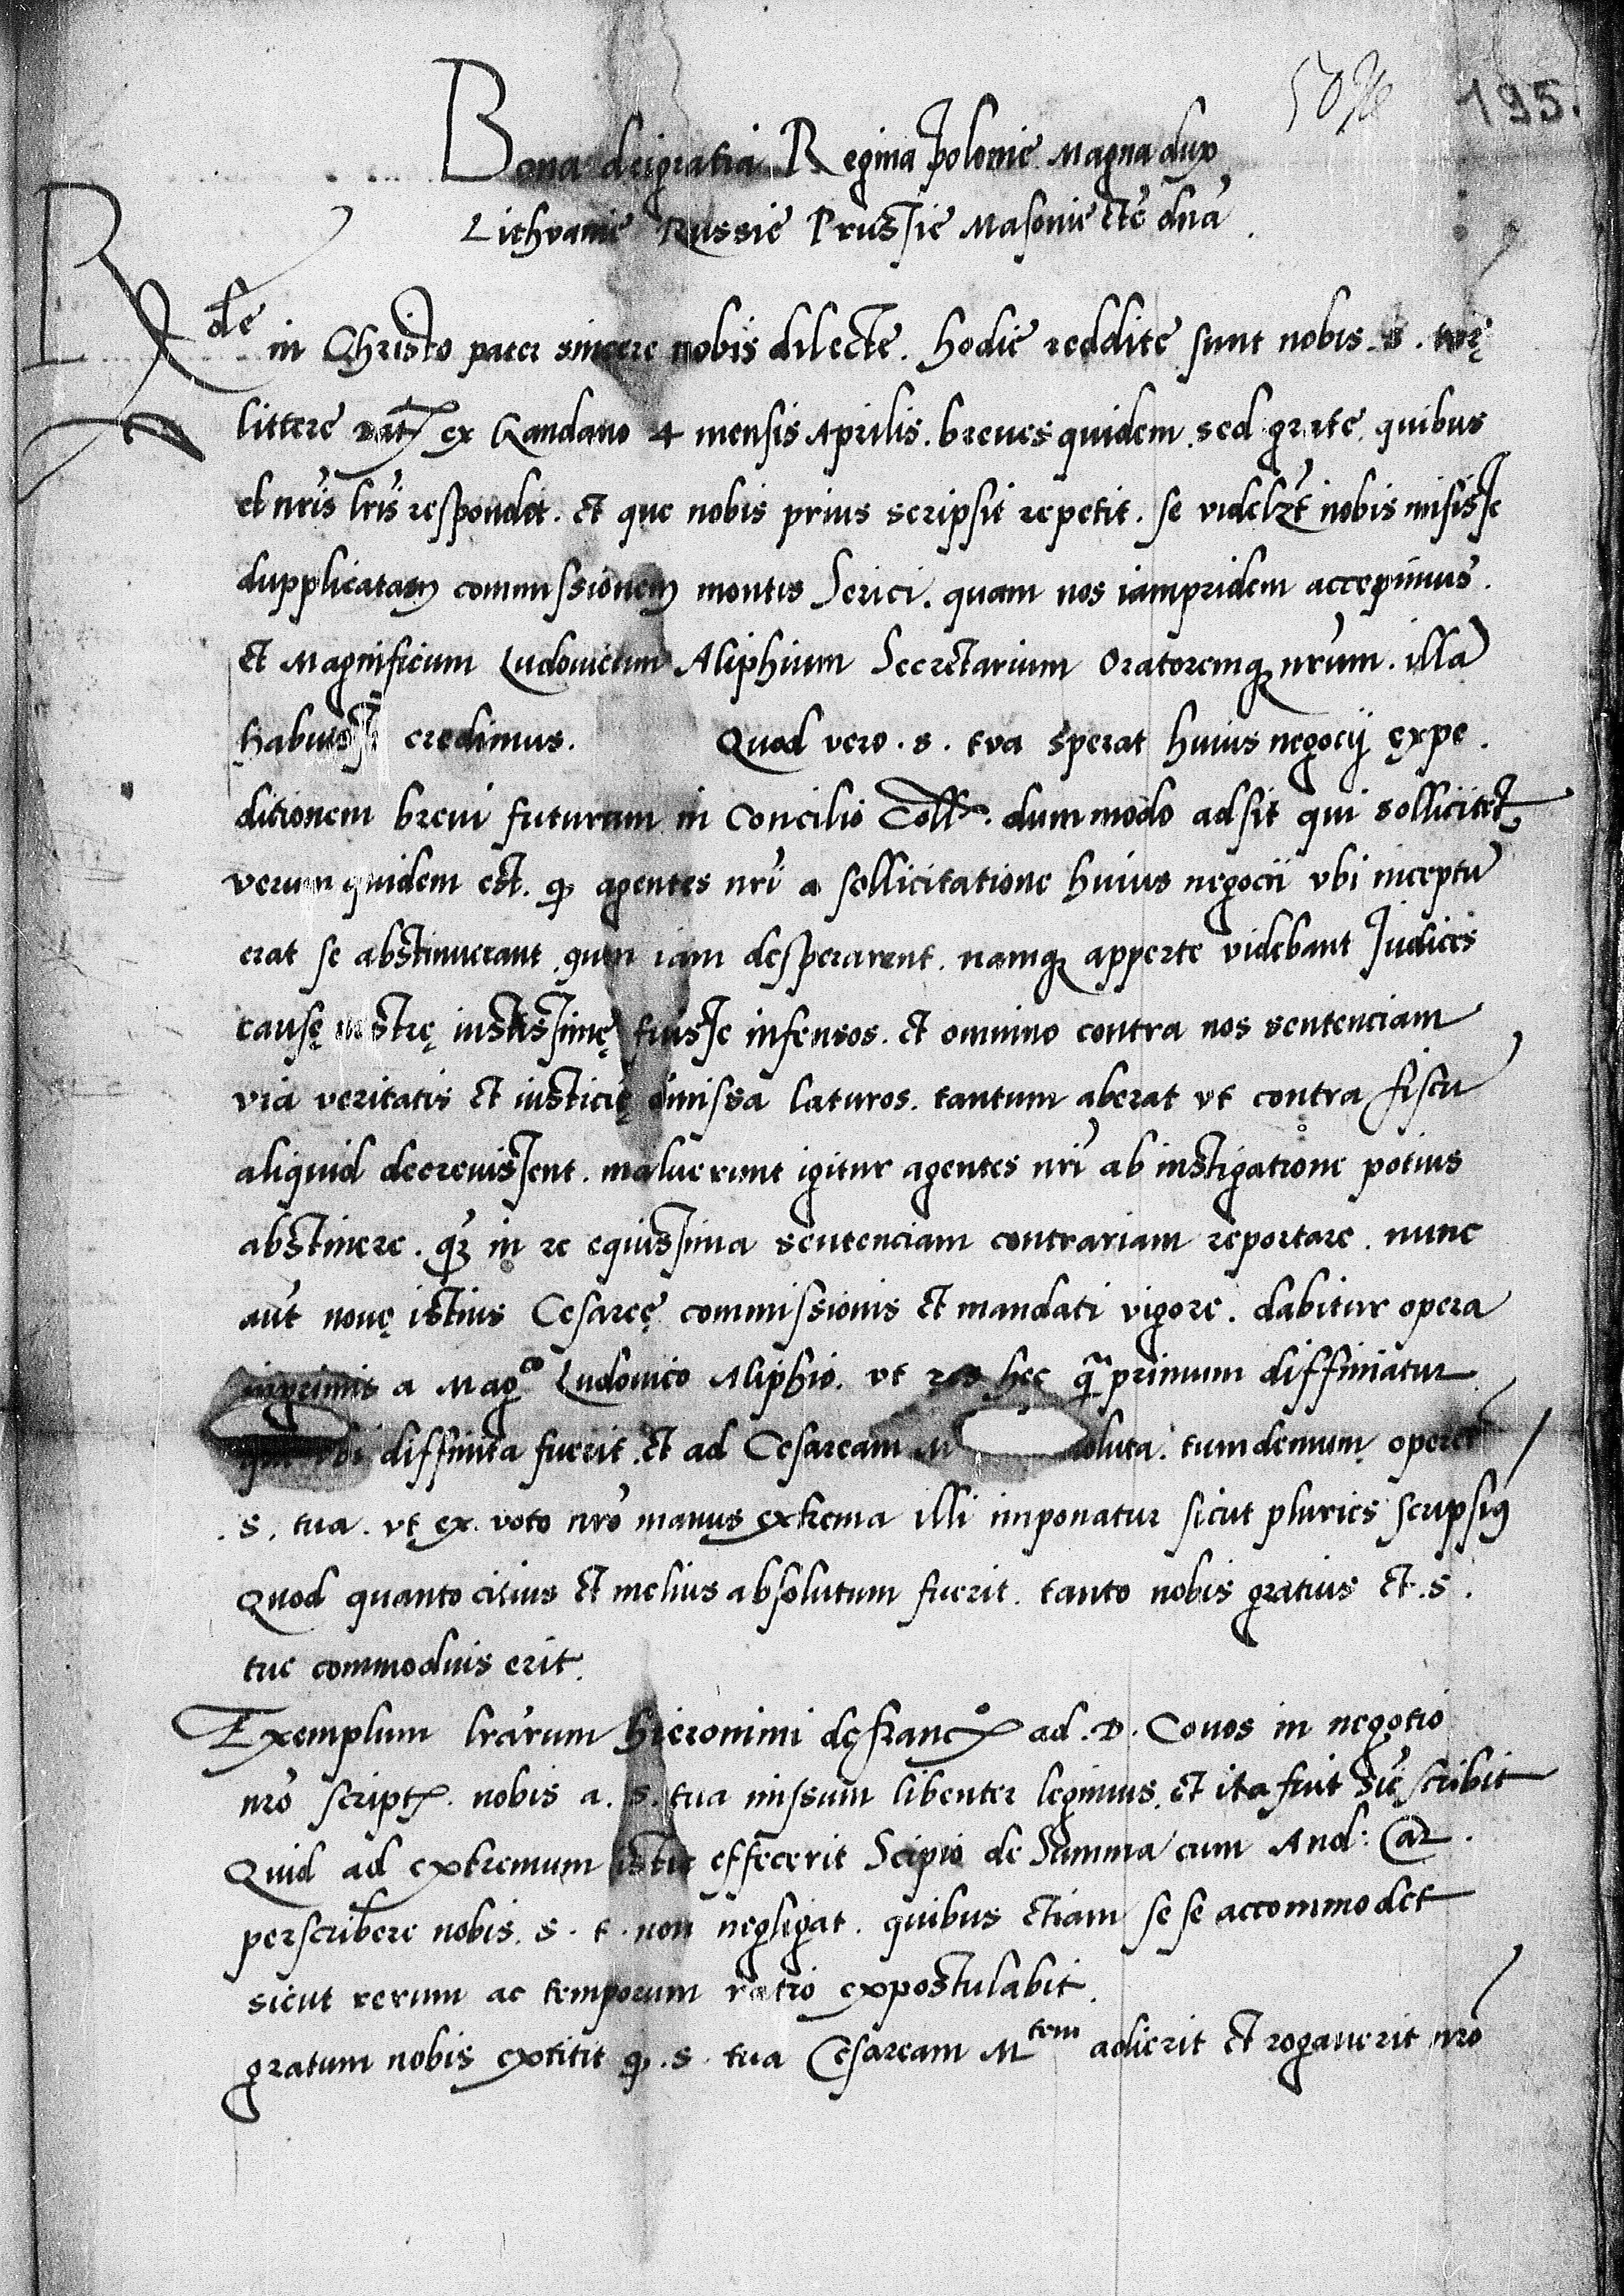 195.
Bona dei gratia Regina Polonie Magna dux
Lithvanie Russie Prussie Masovie etc̄ dnā.
Rde in Christo pater sincere nobis dilecte. hodie reddite sunt nobis. s. tuę
littere dat ex Gandavo 4 mensis Aprilis. breues quidem. sed grate. quibus
et nrīs lrīs respondet. et que nobis prius scripsit repetit. se videlzt nobis misisse
dupplicatam commissionem montis Serici. quam nos iampridem accepimus.
et Magnificum Ludovicum Aliphium Secretarium Oratoremq nrūm. illā
habuisse credimus. Quod vero. s. tua sperat huius negocij expe
ditionem breui futuram in Concilio Coll. dummodo adsit qui sollicitet
verum quidem est. q agentes nrī a sollicitatione huius negocii vbi inceptū
erat se abstinuerant. quum iam desperarent. namq apperte videbant Judices
causę nostrę iustissimę fuisse infensos. et omnino contra nos sentenciam
via veritatis et iusticię omissa laturos. tantum aberat vt contra fiscū
aliquid decreuissent. maluerunt igitur agentes nrī ab instigatione potius
abstinere. q̄ in re equissima sentenciam contrariam reportare. nunc
aūt nouę istius Cesareę commissionis et mandati vigore. dabitur opera
inprimis a Magco Ludovico Aliphio. vt res hec q̄ primum diffiniatur
que vbi diffinita fuerit. et ad Cesaream M oluta. tumdemum operet
. s. tua. vt ex voto nrō manus extrema illi imponatur sicut pluries scripsim9
Quod quanto citius et melius absolutum fuerit. tanto nobis gratius et. s.
tue commodius erit.
Exemplum lrārum Hieronimi de Franc ad. D. Covos in negotio
nrō script. nobis a. s. tua missum libenter legimus. et ita fuit sic scribit
Quid ad extremum istic effecerit Scipio de Summa cum And: Car.
perscribere nobis. s. t. non negligat. quibus etiam se se accommodet
sicut rerum ac temporum ratio expostulabit.
gratum nobis extitit q. s. tua Cesaream Mtem adierit et rogauerit nrō